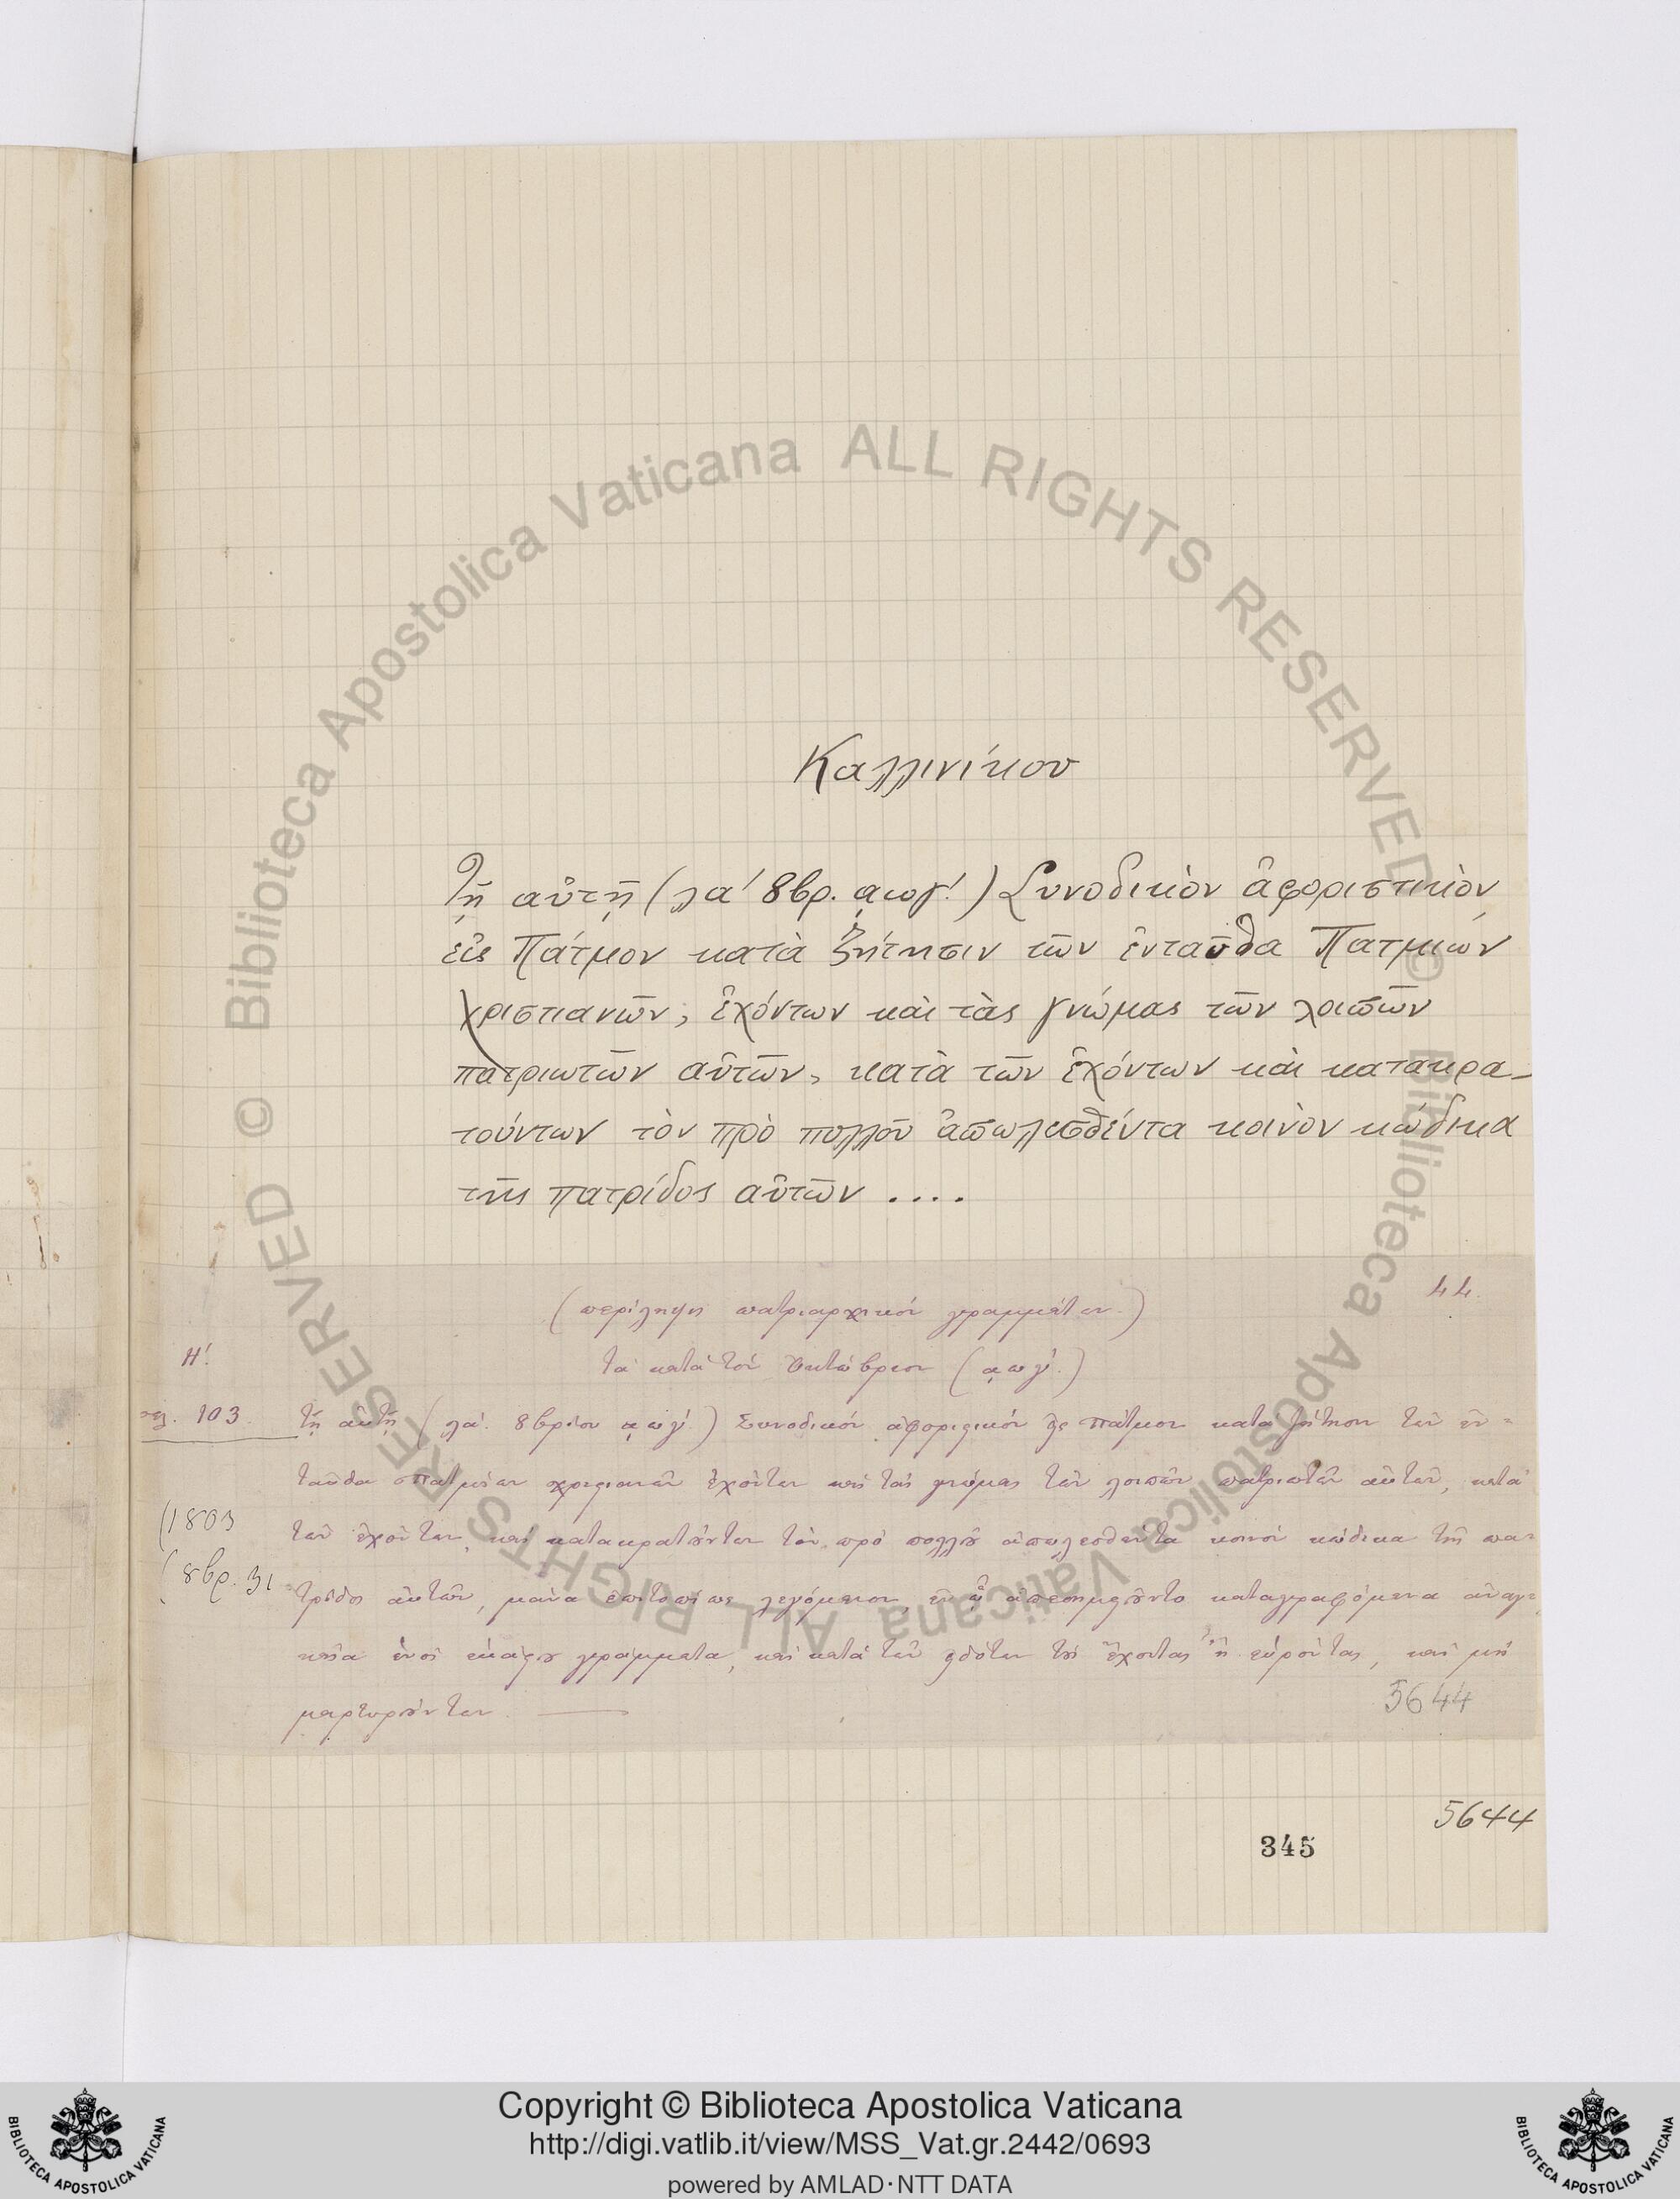 Καλλινίκου
Τῇ αὐτῇ (λα΄ 8βρ. ͵αωγ΄.) Συνοδικὸν ἀφοριστικὸν
εἰς Πάτμον κατὰ ζήτησιν τῶν ἐνταῦθα Πατμίων
χριστιανῶν, ἐχόντων καὶ τὰς γνώμας τῶν λοιπῶν
πατριωτῶν αὐτῶν, κατὰ τῶν ἐχόντων καὶ κατακρα-
τούντων τὸν πρὸ πολλοῦ ἀπωλεσθέντα κοινὸν κώδικα
τῆς πατρίδος αὐτῶν ....
44.
(περίληψις πατριαρχικῶν γραμμάτων.)
Η΄.
τὰ κατὰ τὸν Ὀκτώβριον (͵αωγ΄.)
σελ. 103. τῇ αὐτῇ (λα΄. 8βρίου ͵αωγ΄.) Συνοδικόν ἀφοριστικόν εἰς Πάτμον κατὰ ζήτησιν τῶν ἐν=
ταῦθα Πατμίων χριστιανῶν ἐχόντων καὶ τὰς γνώμας τῶν λοιπῶν πατριωτῶν αὐτῶν, κατὰ
(1803 τῶν ἐχόντων, καὶ κατακρατούντων τὸν πρὸ πολλοῦ ἀπωλεσθέντα κοινὸν κώδικα τῆς πα=
(8βρ. 31 τρίδος αὐτῶν, μάνα ἐπιτοπίως λεγόμενον, ἐν ᾧ καταγραφόμενα ἀναγ=
καῖα ἑνὸς ἑκάστου γράμματα, καὶ κατὰ τῶν εἰδότων τοὺς ἔχοντας ἢ εὑρόντας, καὶ μὴ
μαρτυρούντων.
5644
5644
345
© Biblioteca Apostolica Vaticana ALL RIGHTS RESERVED
© Biblioteca Apostolica Vaticana ALL RIGHTS RESERVED
Copyright © Biblioteca Apostolica Vaticana
http://digi.vatlib.it/view/MSS_Vat.gr.2442/0693
powered by AMLAD·NTT DATA
BIBLIOTECA APOSTOLICA VATICANA
BIBLIOTECA APOSTOLICA VATICANA